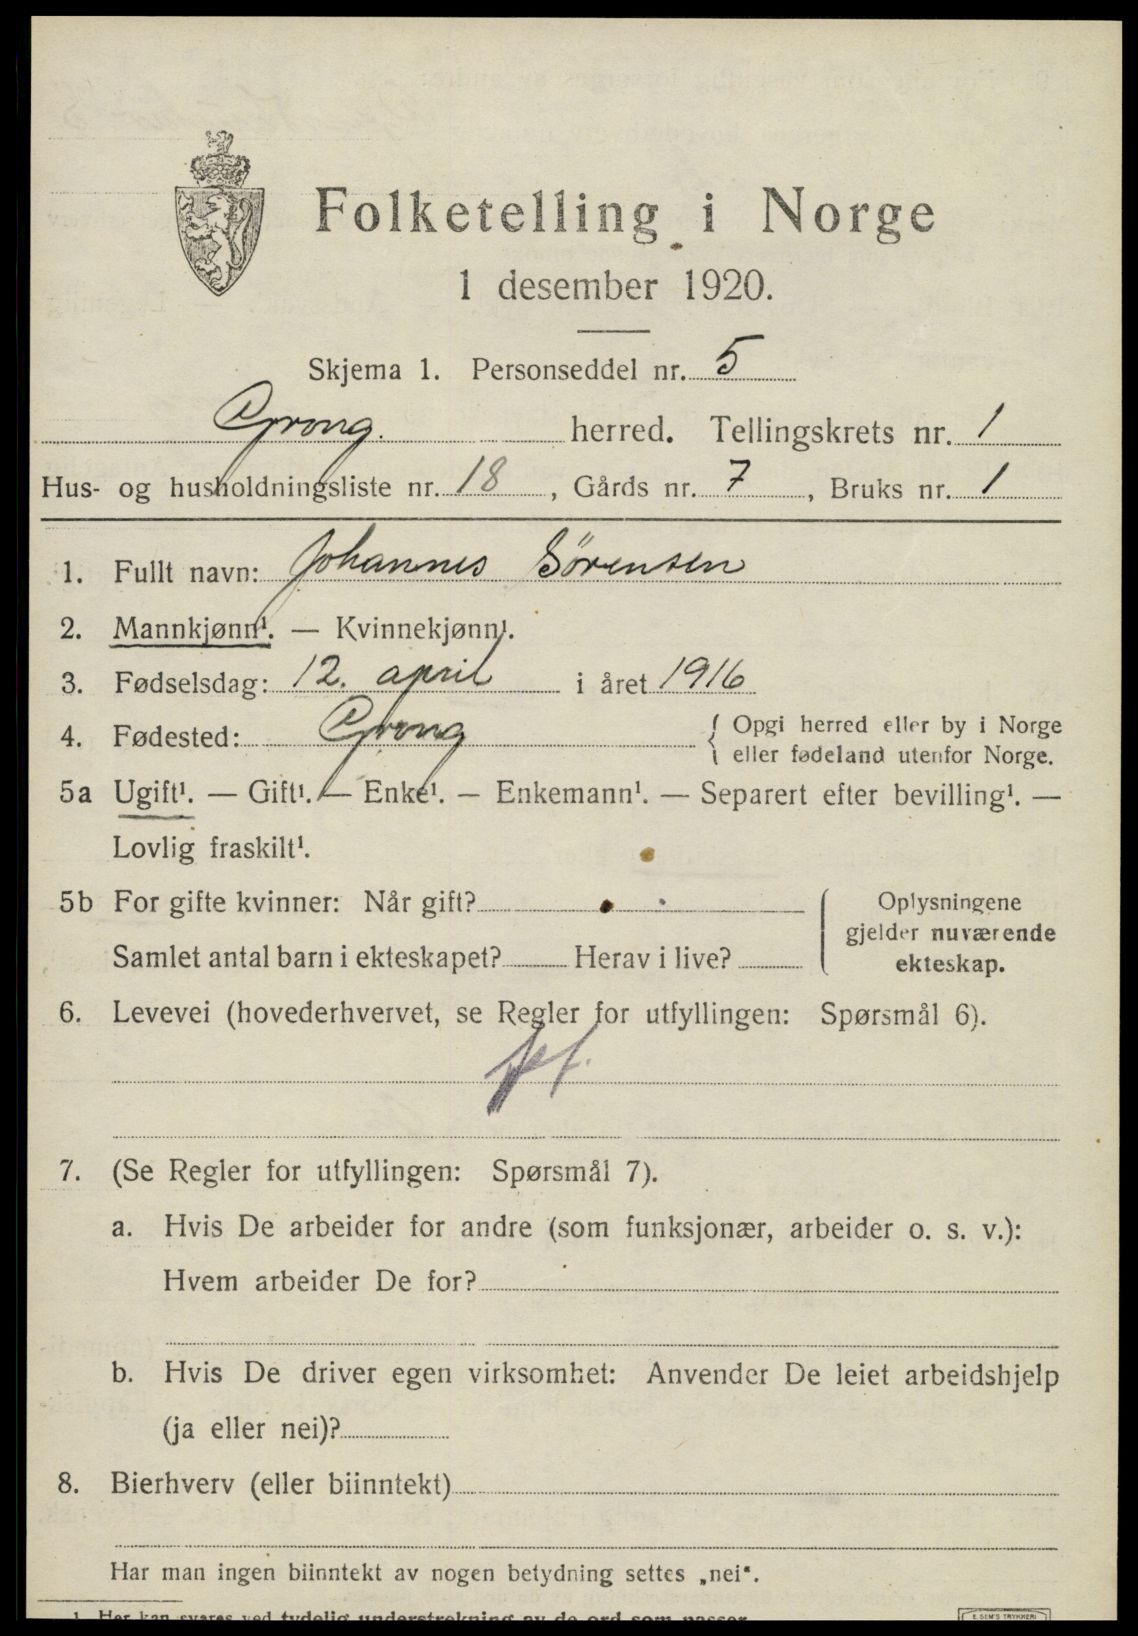 Folketelling i Norge
1 desember 1920.
Skjema 1. Personseddel nr. 5
Grong. herred. Tellingskrets nr. 1
Hus- og husholdningsliste nr. 18, Gårds nr. 7, Bruks nr. 1
1. Fullt navn: Johannes Sørensen
2. Mannkjønn¹. — Kvinnekjønn¹.
3. Fødselsdag: 12. april i året 1916
4. Fødested: Grong { Opgi herred eller by i Norge
eller fødeland utenfor Norge.
5a Ugift¹. — Gift¹. — Enke¹. — Enkemann¹. — Separert efter bevilling¹. —
Lovlig fraskilt¹.
5b For gifte kvinner: Når gift? { Oplysningene
gjelder nuværende
Samlet antal barn i ekteskapet? Herav i live? ekteskap.
6. Levevei (hovederhvervet, se Regler for utfyllingen: Spørsmål 6).
7. (Se Regler for utfyllingen: Spørsmål 7).
a. Hvis De arbeider for andre (som funksjonær, arbeider o. s. v.):
Hvem arbeider De for?
b. Hvis De driver egen virksomhet: Anvender De leiet arbeidshjelp
(ja eller nei)?
8. Bierhverv (eller biinntekt)
Har man ingen biinntekt av nogen betydning settes „nei“.
1 Her kan svares ved tydelig understrekning av de ord som passer.
E. SEM'S TRYKKERI